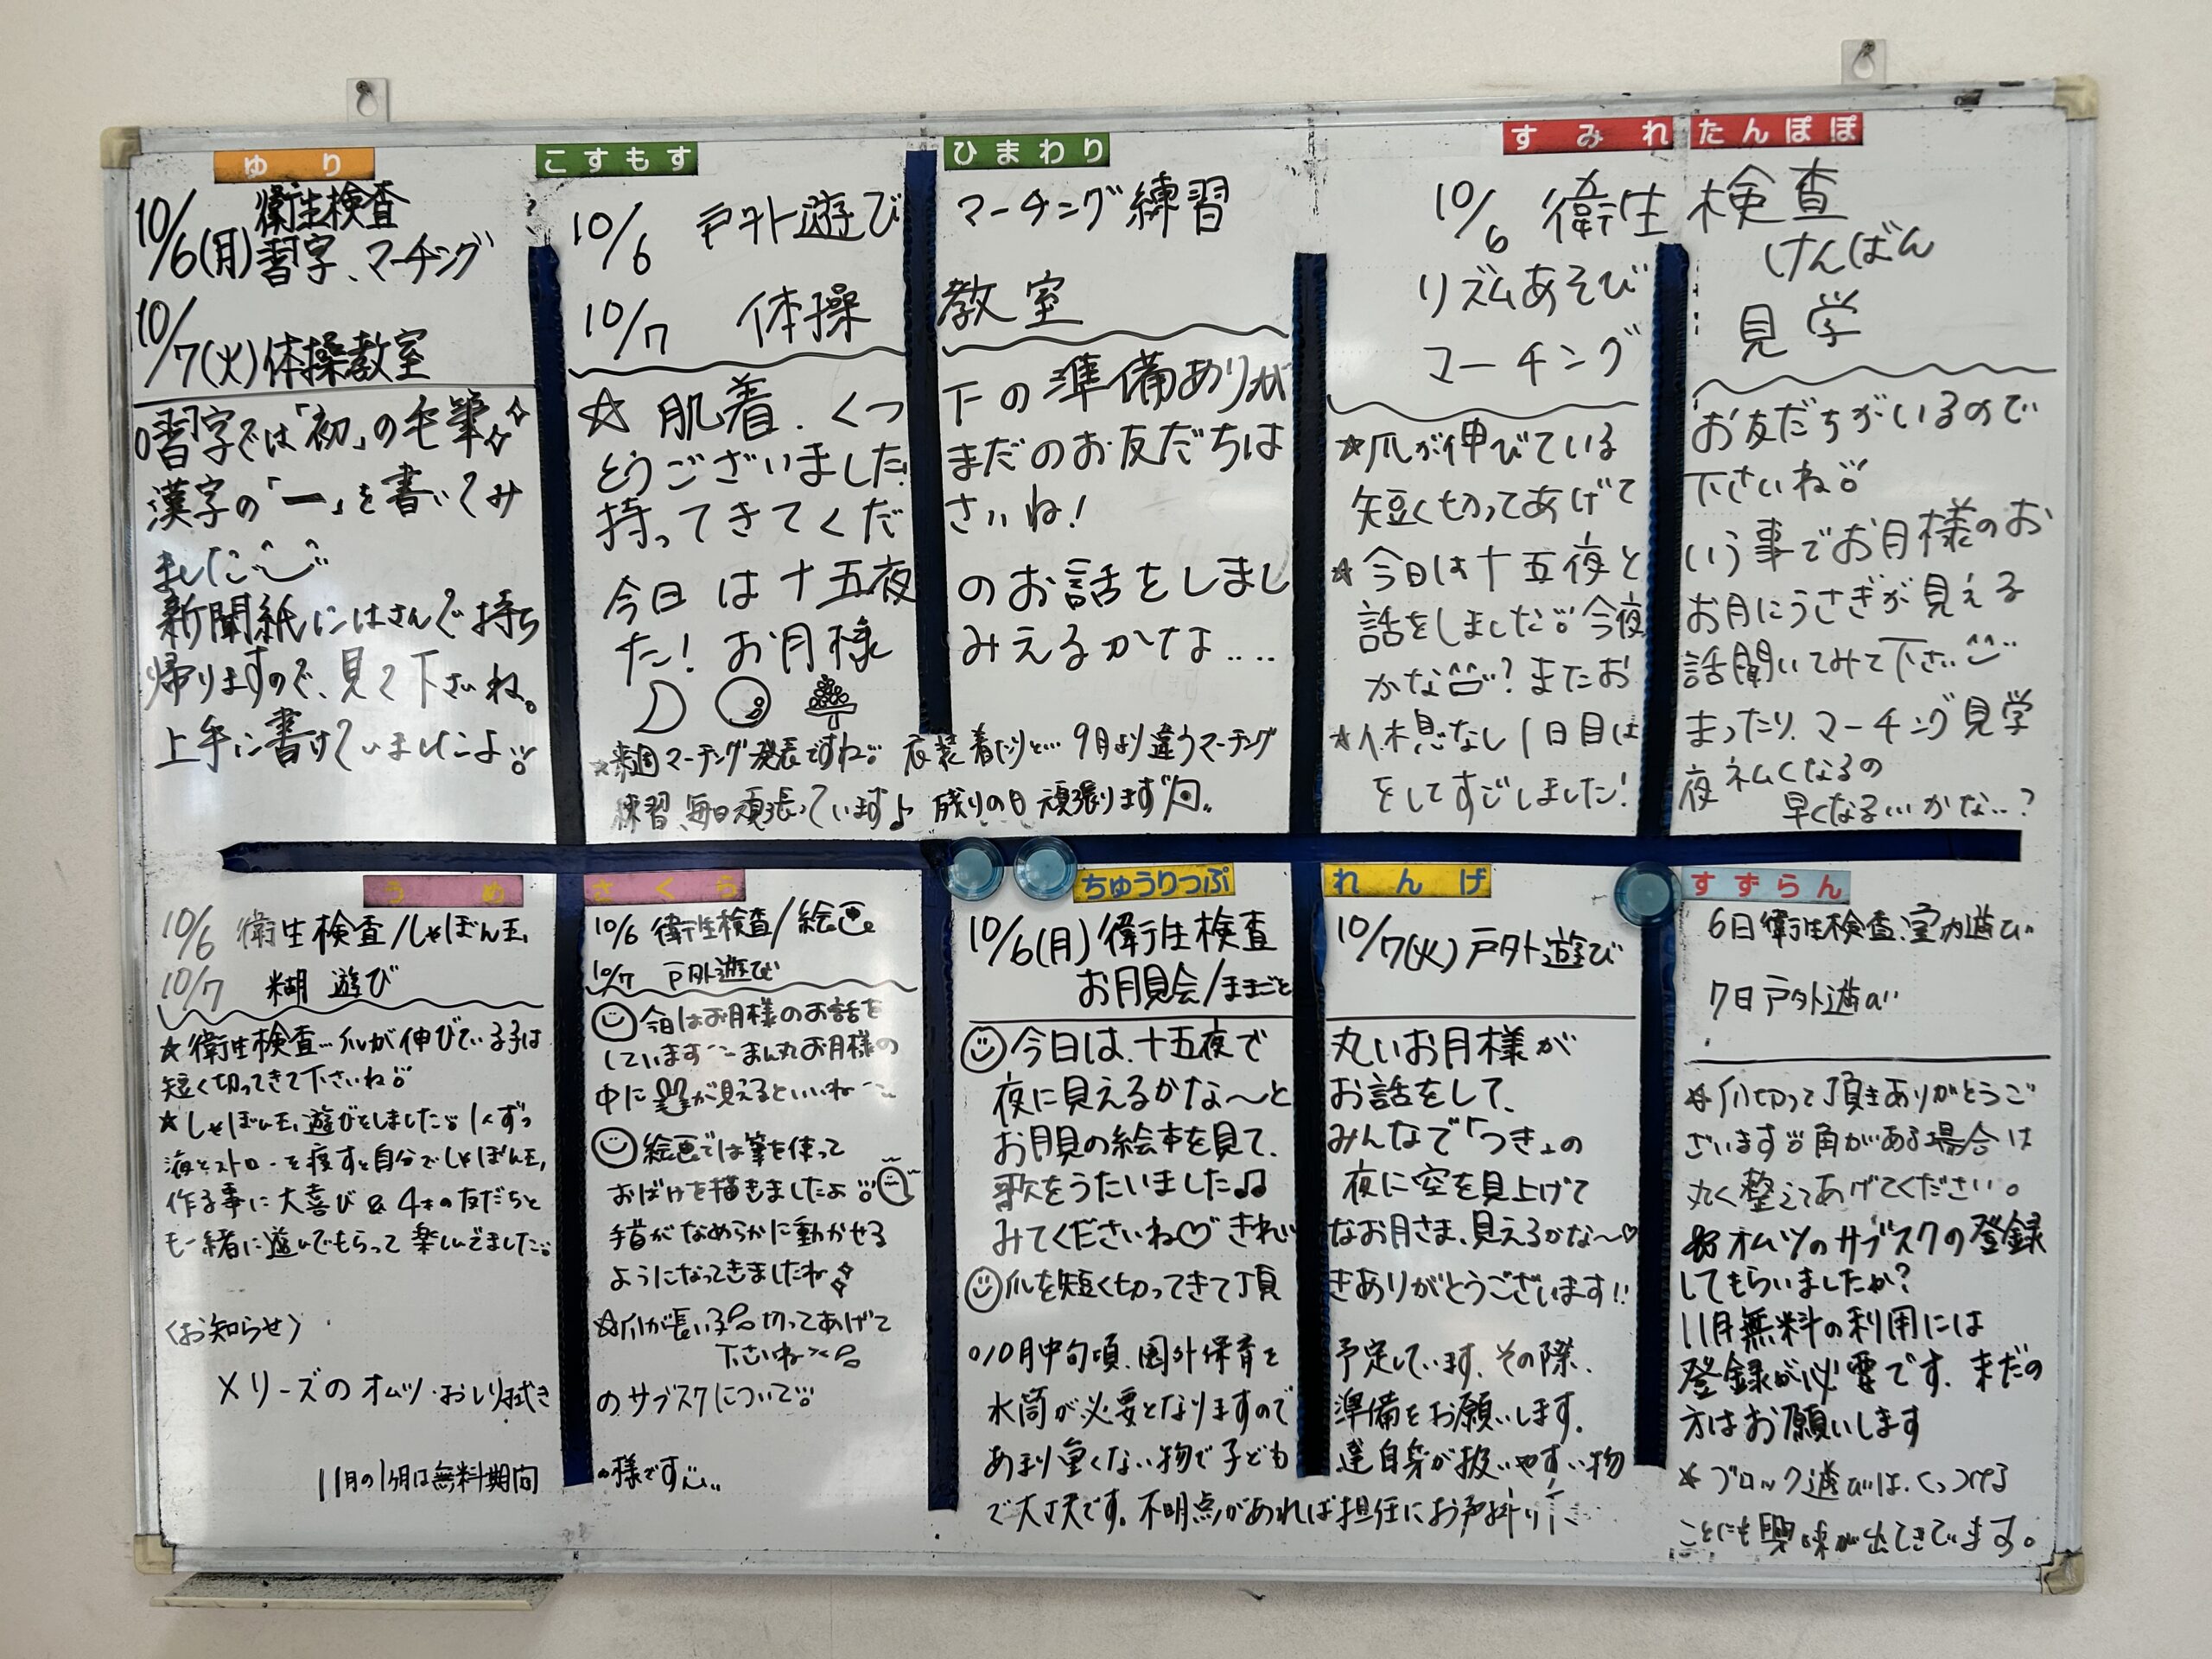 ゆり
10/6(月) 衛生検査
習字、マーチング
10/7(火)体操教室
○習字では「初」の毛筆
漢字の「一」を書いてみ
ました
新聞紙にはさんで持ち
帰りますので、見て下さいね。
上手に書けていましたよ
こすもす ひまわり
10/6 戸外遊び マーチング練習
10/7 体操 教室
☆ 肌着、くつ下の準備ありが
とうございました! まだのお友だちは
持ってきてくだ さいね!
今日は十五夜 のお話をしまし
た! お月様 みえるかな‥‥
★来週マーチング発表ですね 衣装着たりと… 9月より違うマーチング
練習、毎日頑張っています♪ 残りの日頑張ります）
すみれ たんぽぽ
10/6 衛生検査
リズムあそび けんばん
マーチング 見学
★爪が伸びている お友だちがいるので
短く切ってあげて 下さいね
★今日は十五夜と いう事でお月様のお
話をしました 今夜 お月にうさぎが見える
かな? またお 話聞いてみて下さい
★休息なし1日目は まったり、マーチング見学
をしてすごしました! 夜ネムくなるの
早くなる…かな…?
うめ
10/6 衛生検査/しゃぼん玉
10/7 糊遊び
★衛生検査…爪が伸びている子は
短く切ってきて下さいね
★しゃぼん玉遊びをしました 1人ずつ
液とストローを渡すと自分でしゃぼん玉
作る事に大喜び & 4才の友だちと
も一緒に遊んでもらって楽しんでました
さくら
10/6 衛生検査/絵画
10/7 戸外遊び
今日はお月様のお話を
しています まん丸お月様の
中に が見えるといいね
絵画では筆を使って
おばけを描きましたよ
手首がなめらかに動かせる
ようになってきましたね
☆爪が長い子 切ってあげて
下さいね
〈お知らせ〉
メリーズのオムツ・おしり拭き のサブスクについて
11月の1ヶ月は無料期間 の様です
ちゅうりっぷ れんげ
10/6(月)衛生検査 10/7(火)戸外遊び
お月見会/ままごと
今日は、十五夜で 丸いお月様が
夜に見えるかな〜と お話をして、
お月見の絵本を見て、 みんなで「つき」の
歌をうたいました♫ 夜に空を見上げて
みてくださいね♡ きれい なお月さま、見えるかな〜♡
爪を短く切ってきて頂 きありがとうございます!!
○10月中旬頃、園外保育を 予定しています。その際、
水筒が必要となりますので 準備をお願いします。
あまり重くない物で子ども 達自身が扱いやすい物
で大丈夫です。不明点があれば担任にお声掛け
すずらん
6日衛生検査、室内遊び
7日戸外遊び
★爪切って頂きありがとうご
ざいます 角がある場合は
丸く整えてあげてください。
オムツのサブスクの登録
してもらいましたか?
11月無料の利用には
登録が必要です。まだの
方はお願いします
★ブロック遊びは、くっつける
ことにも興味が出てきています。